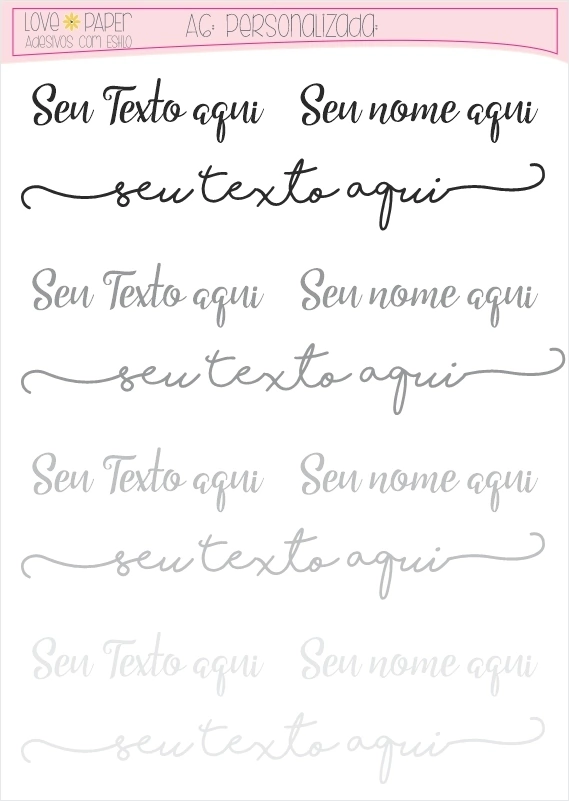 LOVE PAPER
ADESIVOS COM ESTILO
AG: PERSONALIZADA:
Seu Texto aqui Seu nome aqui
seu texto aqui
Seu Texto aqui Seu nome aqui
seu texto aqui
Seu Texto aqui Seu nome aqui
seu texto aqui
Seu Texto aqui Seu nome aqui
seu texto aqui